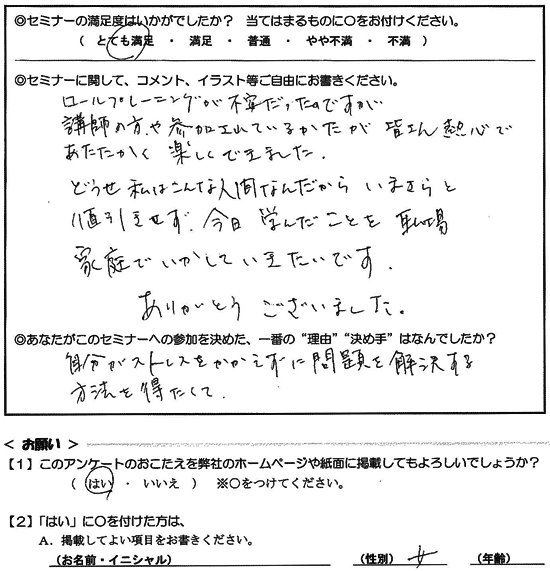 ◎セミナーの満足度はいかがでしたか？ 当てはまるものに〇をお付けください。
（ とても満足 ・ 満足 ・ 普通 ・ やや不満 ・ 不満 ）
◎セミナーに関して、コメント、イラスト等ご自由にお書きください。
ロールプレーニングが不安だったのですが
講師の方や参加されているかたが皆さん熱心で
あたたかく楽しくできました．
どうせ私はこんな人間なんだから いまさらと
値引きせず．今日学んだことを職場
家庭でいかしていきたいです．
ありがとうございました。
◎あなたがこのセミナーへの参加を決めた、一番の“理由”“決め手”はなんでしたか？
自分がストレスをかかえずに問題を解決する
方法を得たくて．
＜ お願い ＞
【1】このアンケートのおこたえを弊社のホームページや紙面に掲載してもよろしいでしょうか？
（ はい ・ いいえ ） ※〇をつけてください。
【2】「はい」に〇を付けた方は、
A．掲載してよい項目をお書きください。
（お名前・イニシャル） （性別） 女 （年齢）